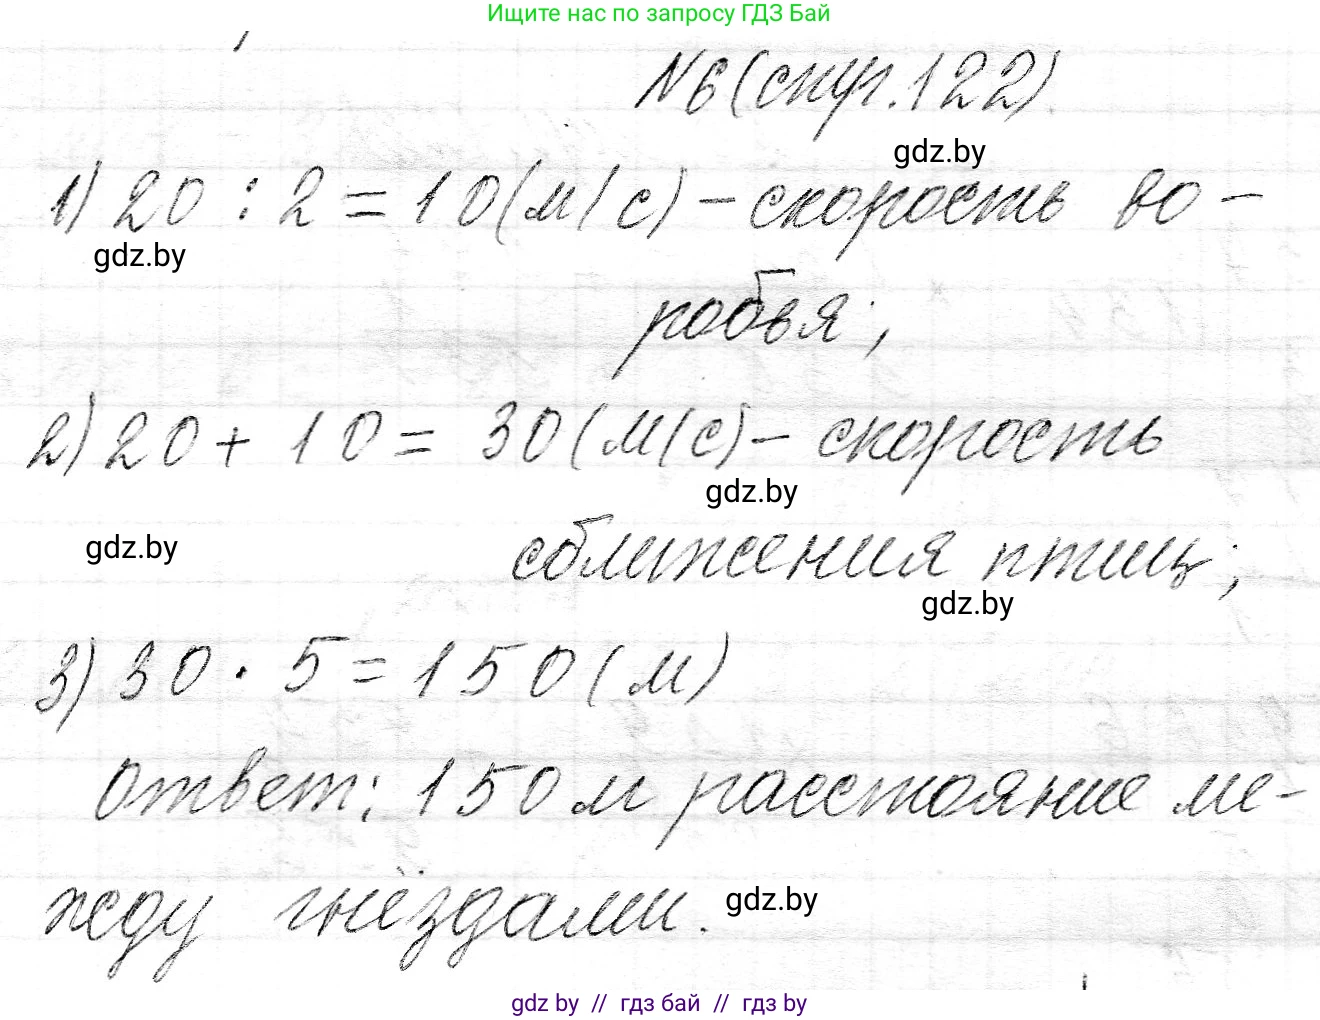 Ищите нас по запросу ГДЗ Бай
№6 (стр. 122).
gdz.by
1) 20 : 2 = 10 (м/с) – скорость во-
gdz.by
робья;
2) 20 + 10 = 30 (м/с) – скорость
gdz.by
gdz.by
сближения птиц;
gdz.by
3) 30 · 5 = 150 (м)
ответ: 150 м расстояние ме-
жду гнёздами.
gdz.by
gdz by // гдз бай // гдз by